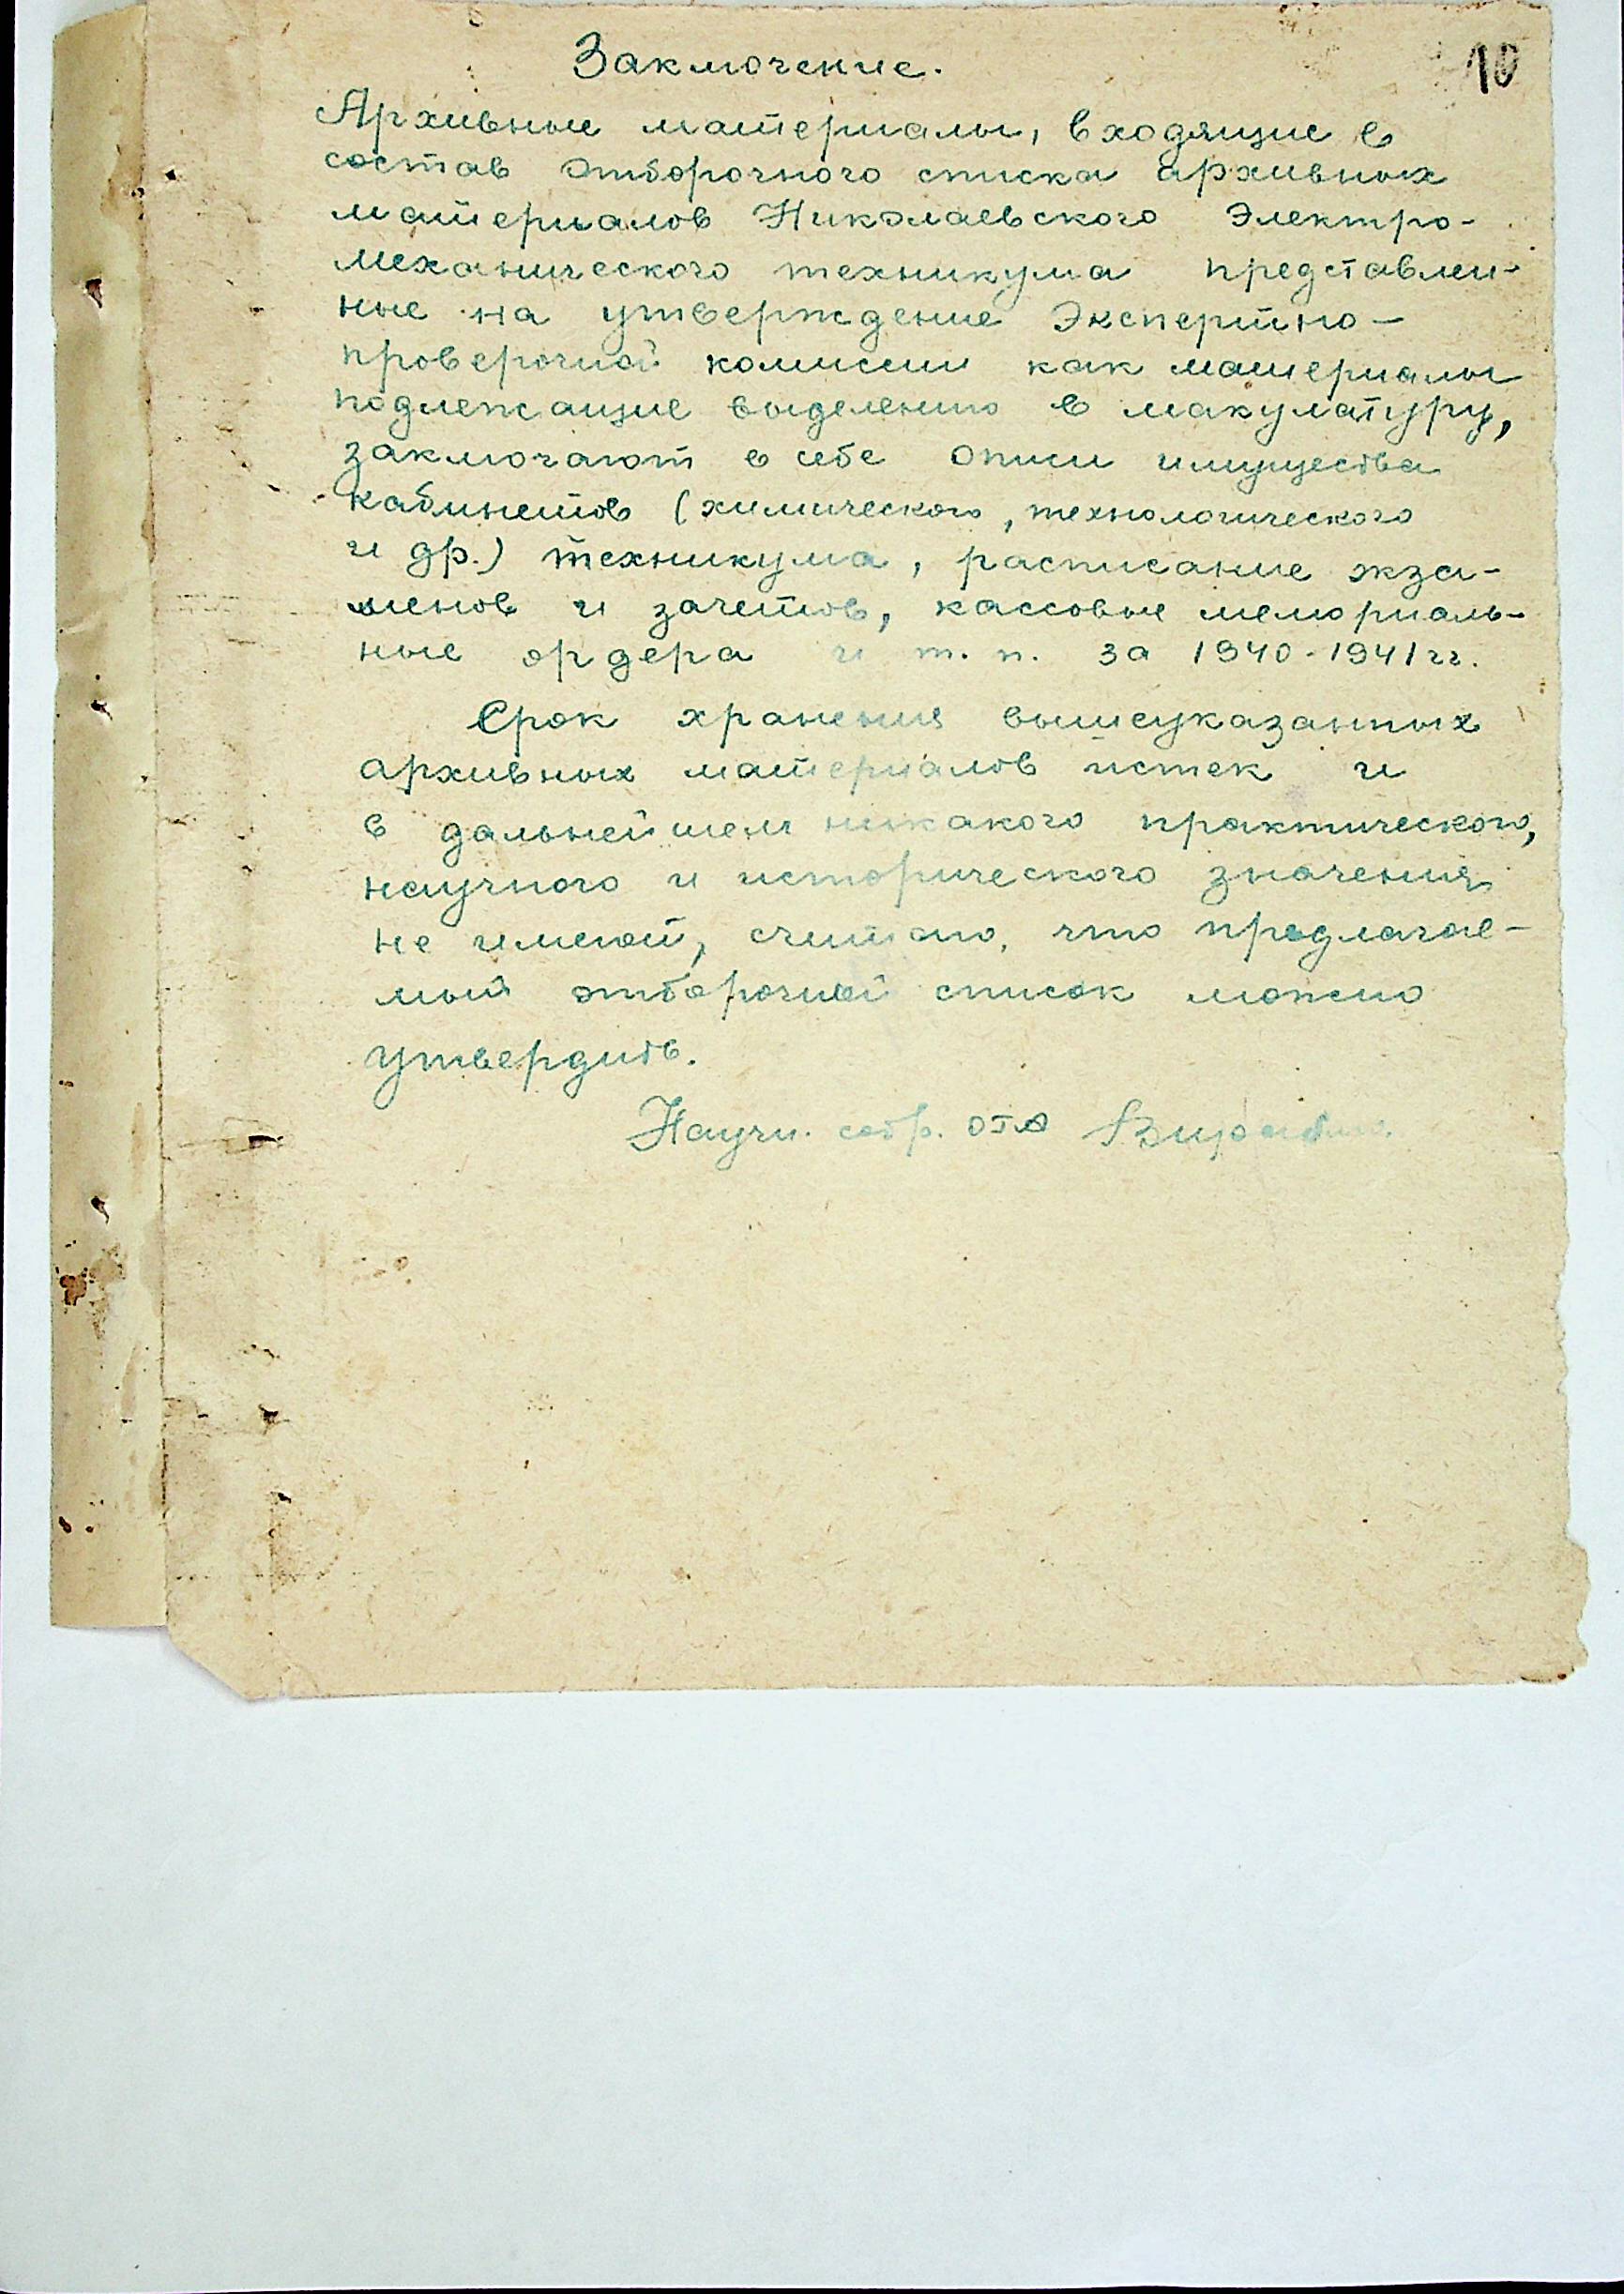 10
Заключение.
Архивные материалы, входящие в
состав отборочного списка архивных
материалов Николаевского Электро-
механического техникума представлен-
ные на утверждение Экспертно-
проверочной комиссии как материалы
подлежащие выделению в макулатуру,
заключают в себе описи имущества
кабинетов (химического, технологического
и др.) техникума, расписание экза-
менов и зачетов, кассовые мемориаль-
ные ордера и т. п. за 1940-1941 гг.
Срок хранения вышеуказанных
архивных материалов истек и
в дальнейшем никакого практического,
научного и исторического значения
не имеют, считаю, что предлагае-
мый отборочный список можно
утвердить.
Научн. сотр. ОГА